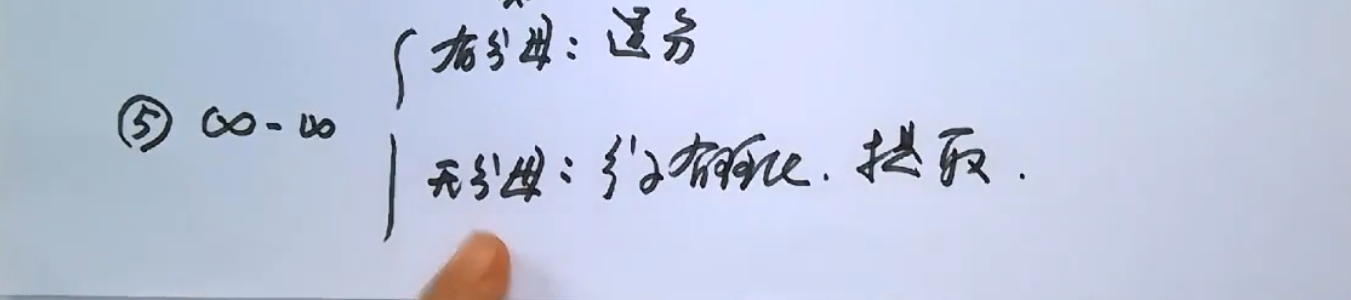 有分母：通分
⑤ ∞-∞
无分母：分子有理化．提取．